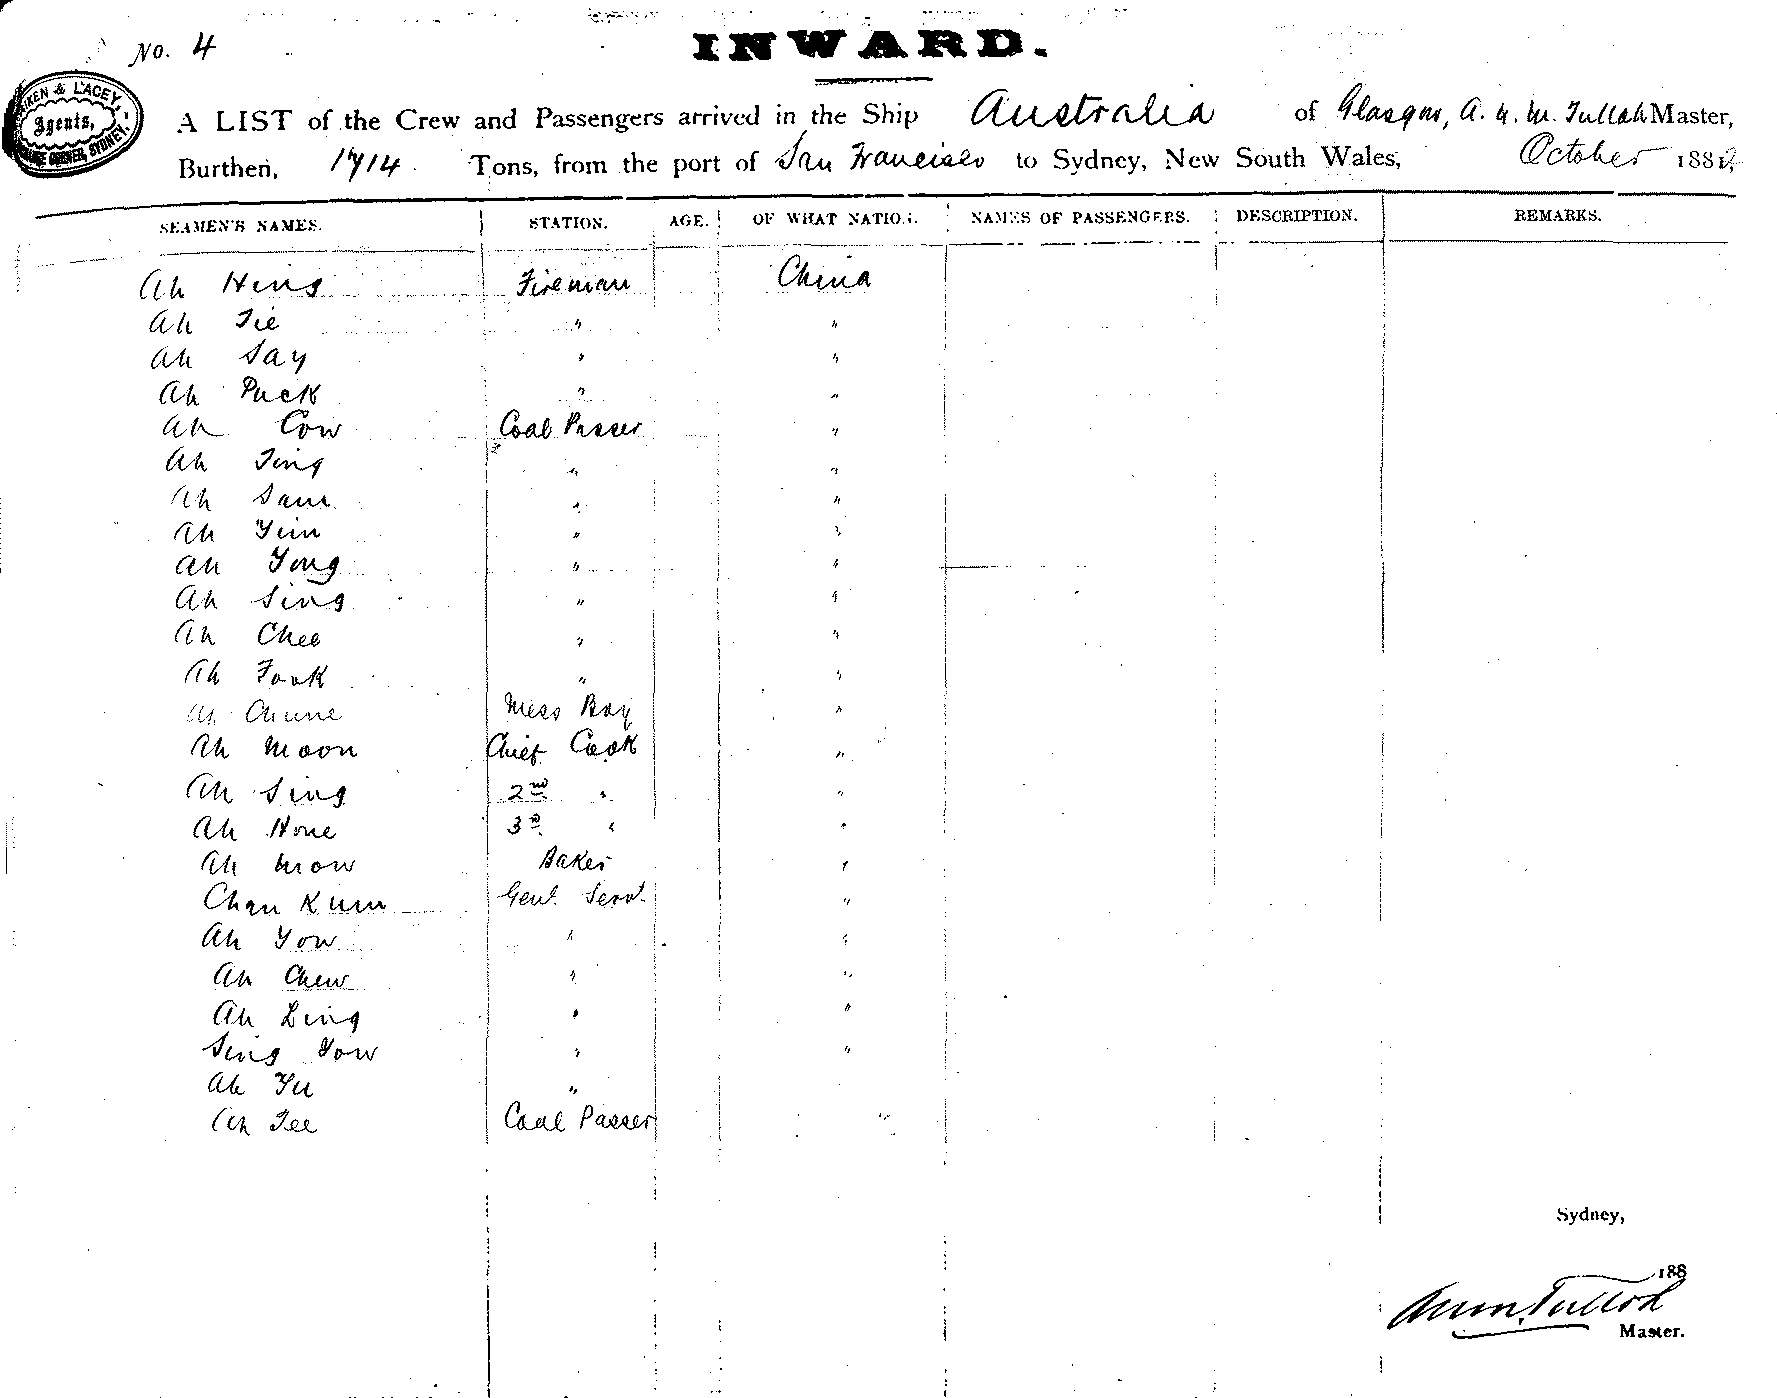 No. 4
INWARD.
AGENTS,
A LIST of the Crew and Passengers arrived in the Ship Australia of Glasgow, Master,
Burthen, 1714 Tons, from the port of San Francisco to Sydney, New South Wales, October 188
SEAMEN'S NAMES. STATION. AGE. OF WHAT NATION. NAMES OF PASSENGERS. DESCRIPTION. REMARKS.
Ah Hing Fireman China
Ah Tie " "
Ah Say " "
Ah Puck " "
Ah Cow Coal Passer "
Ah Ting " "
Ah Sam " "
Ah Yim " "
Ah Yong " "
Ah Sing " "
Ah Chee " "
Ah Fook " "
Ah Chune Mess Boy "
Ah Moon Chief Cook "
Ah Sing 2nd " "
Ah Hone 3d " "
Ah Mow Baker "
Chan Kum Genl. Servt. "
Ah Yow " "
Ah Chew " "
Ah Ling " "
Sing Yow " "
Ah Yu "
Ah Tee Coal Passer "
Sydney,
188
Master.